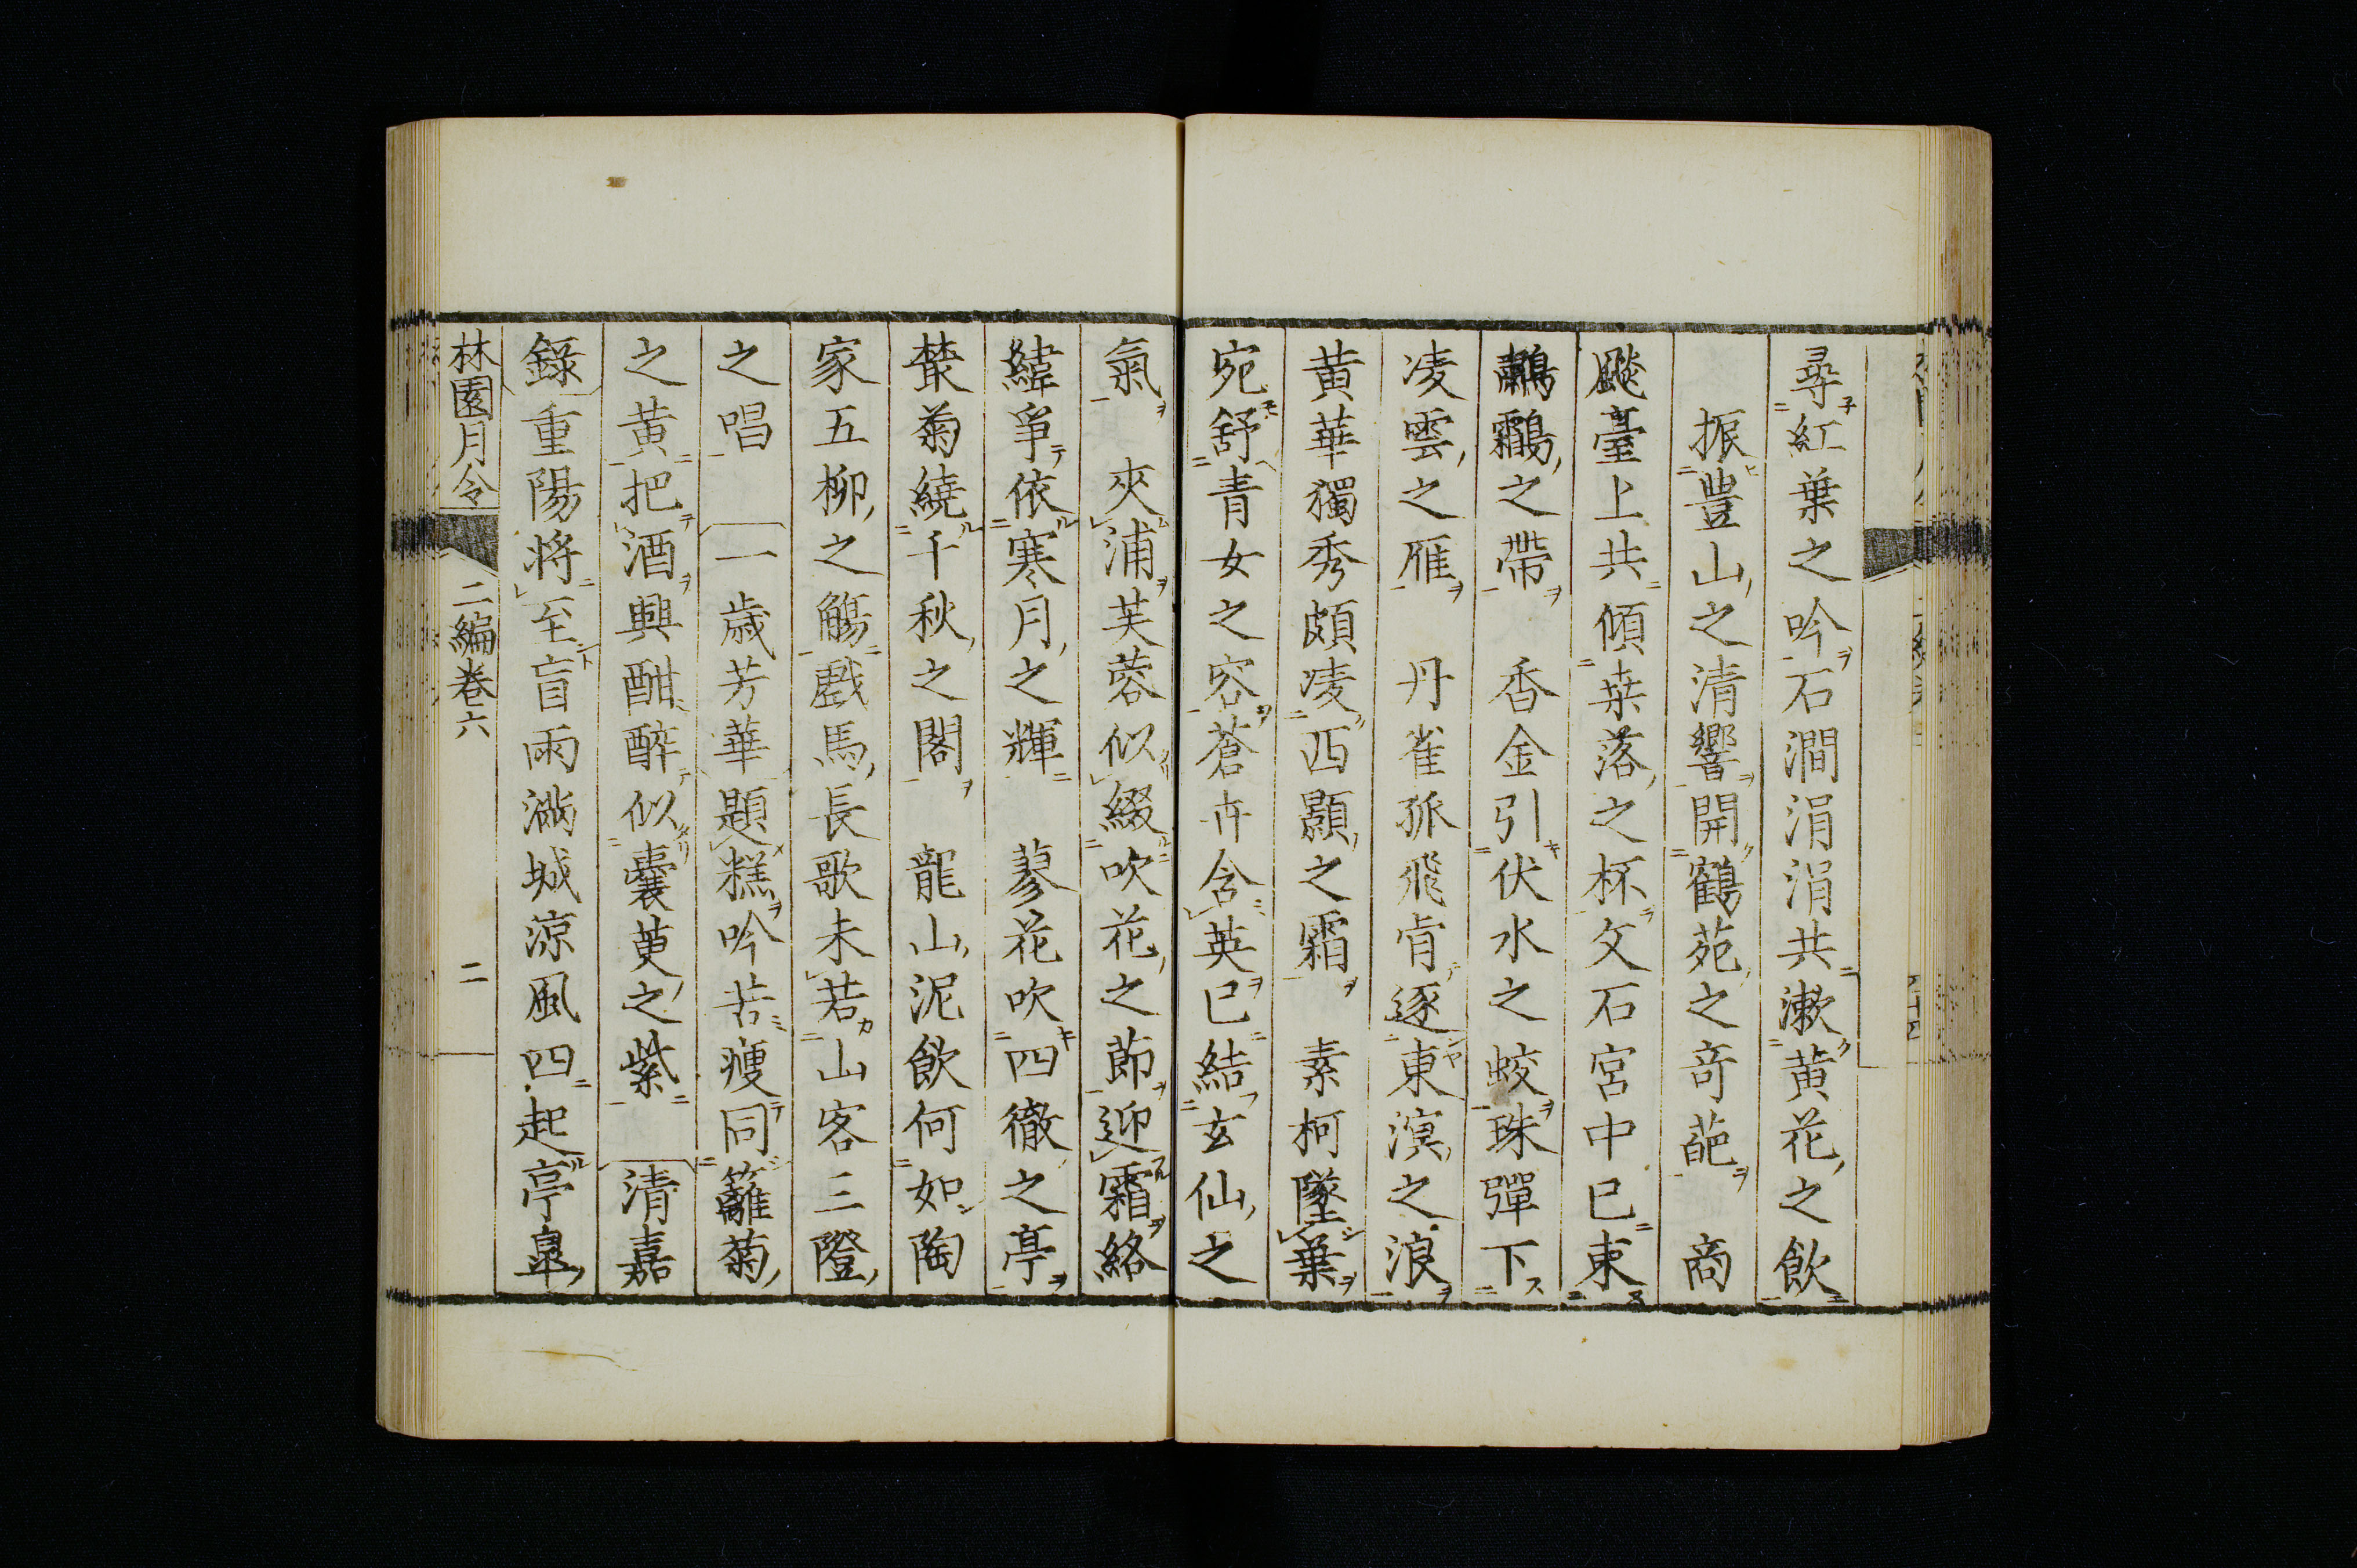 尋紅葉之吟石澗涓涓共漱黃花之飲
振豊山之清響開鶴苑之奇葩 商
飈臺上共傾桒落之杯文石宮中已束
鷫鸘之帶 香金引伏水之蛟珠彈下
凌雲之雁 丹雀孤飛肻逐東溟之浪
黃華獨秀頗凌西顥之霜 素柯墜葉
宛舒青女之容蒼卉含英已結玄仙之
氣 夾浦芙蓉似綴吹花之節迎霜絡
緯爭依寒月之輝 蓼花吹四徹之亭
叢菊繞千秋之閣 龍山泥飲何如陶
家五柳之觴戲馬長歌未若山客三隥
之唱 一歲芳華題糕吟苦瘦同籬菊
之黃把酒興酣醉似囊萸之紫 清嘉
錄重陽將至盲雨滿城涼風四起亭皐
林園月令 二編卷六 二